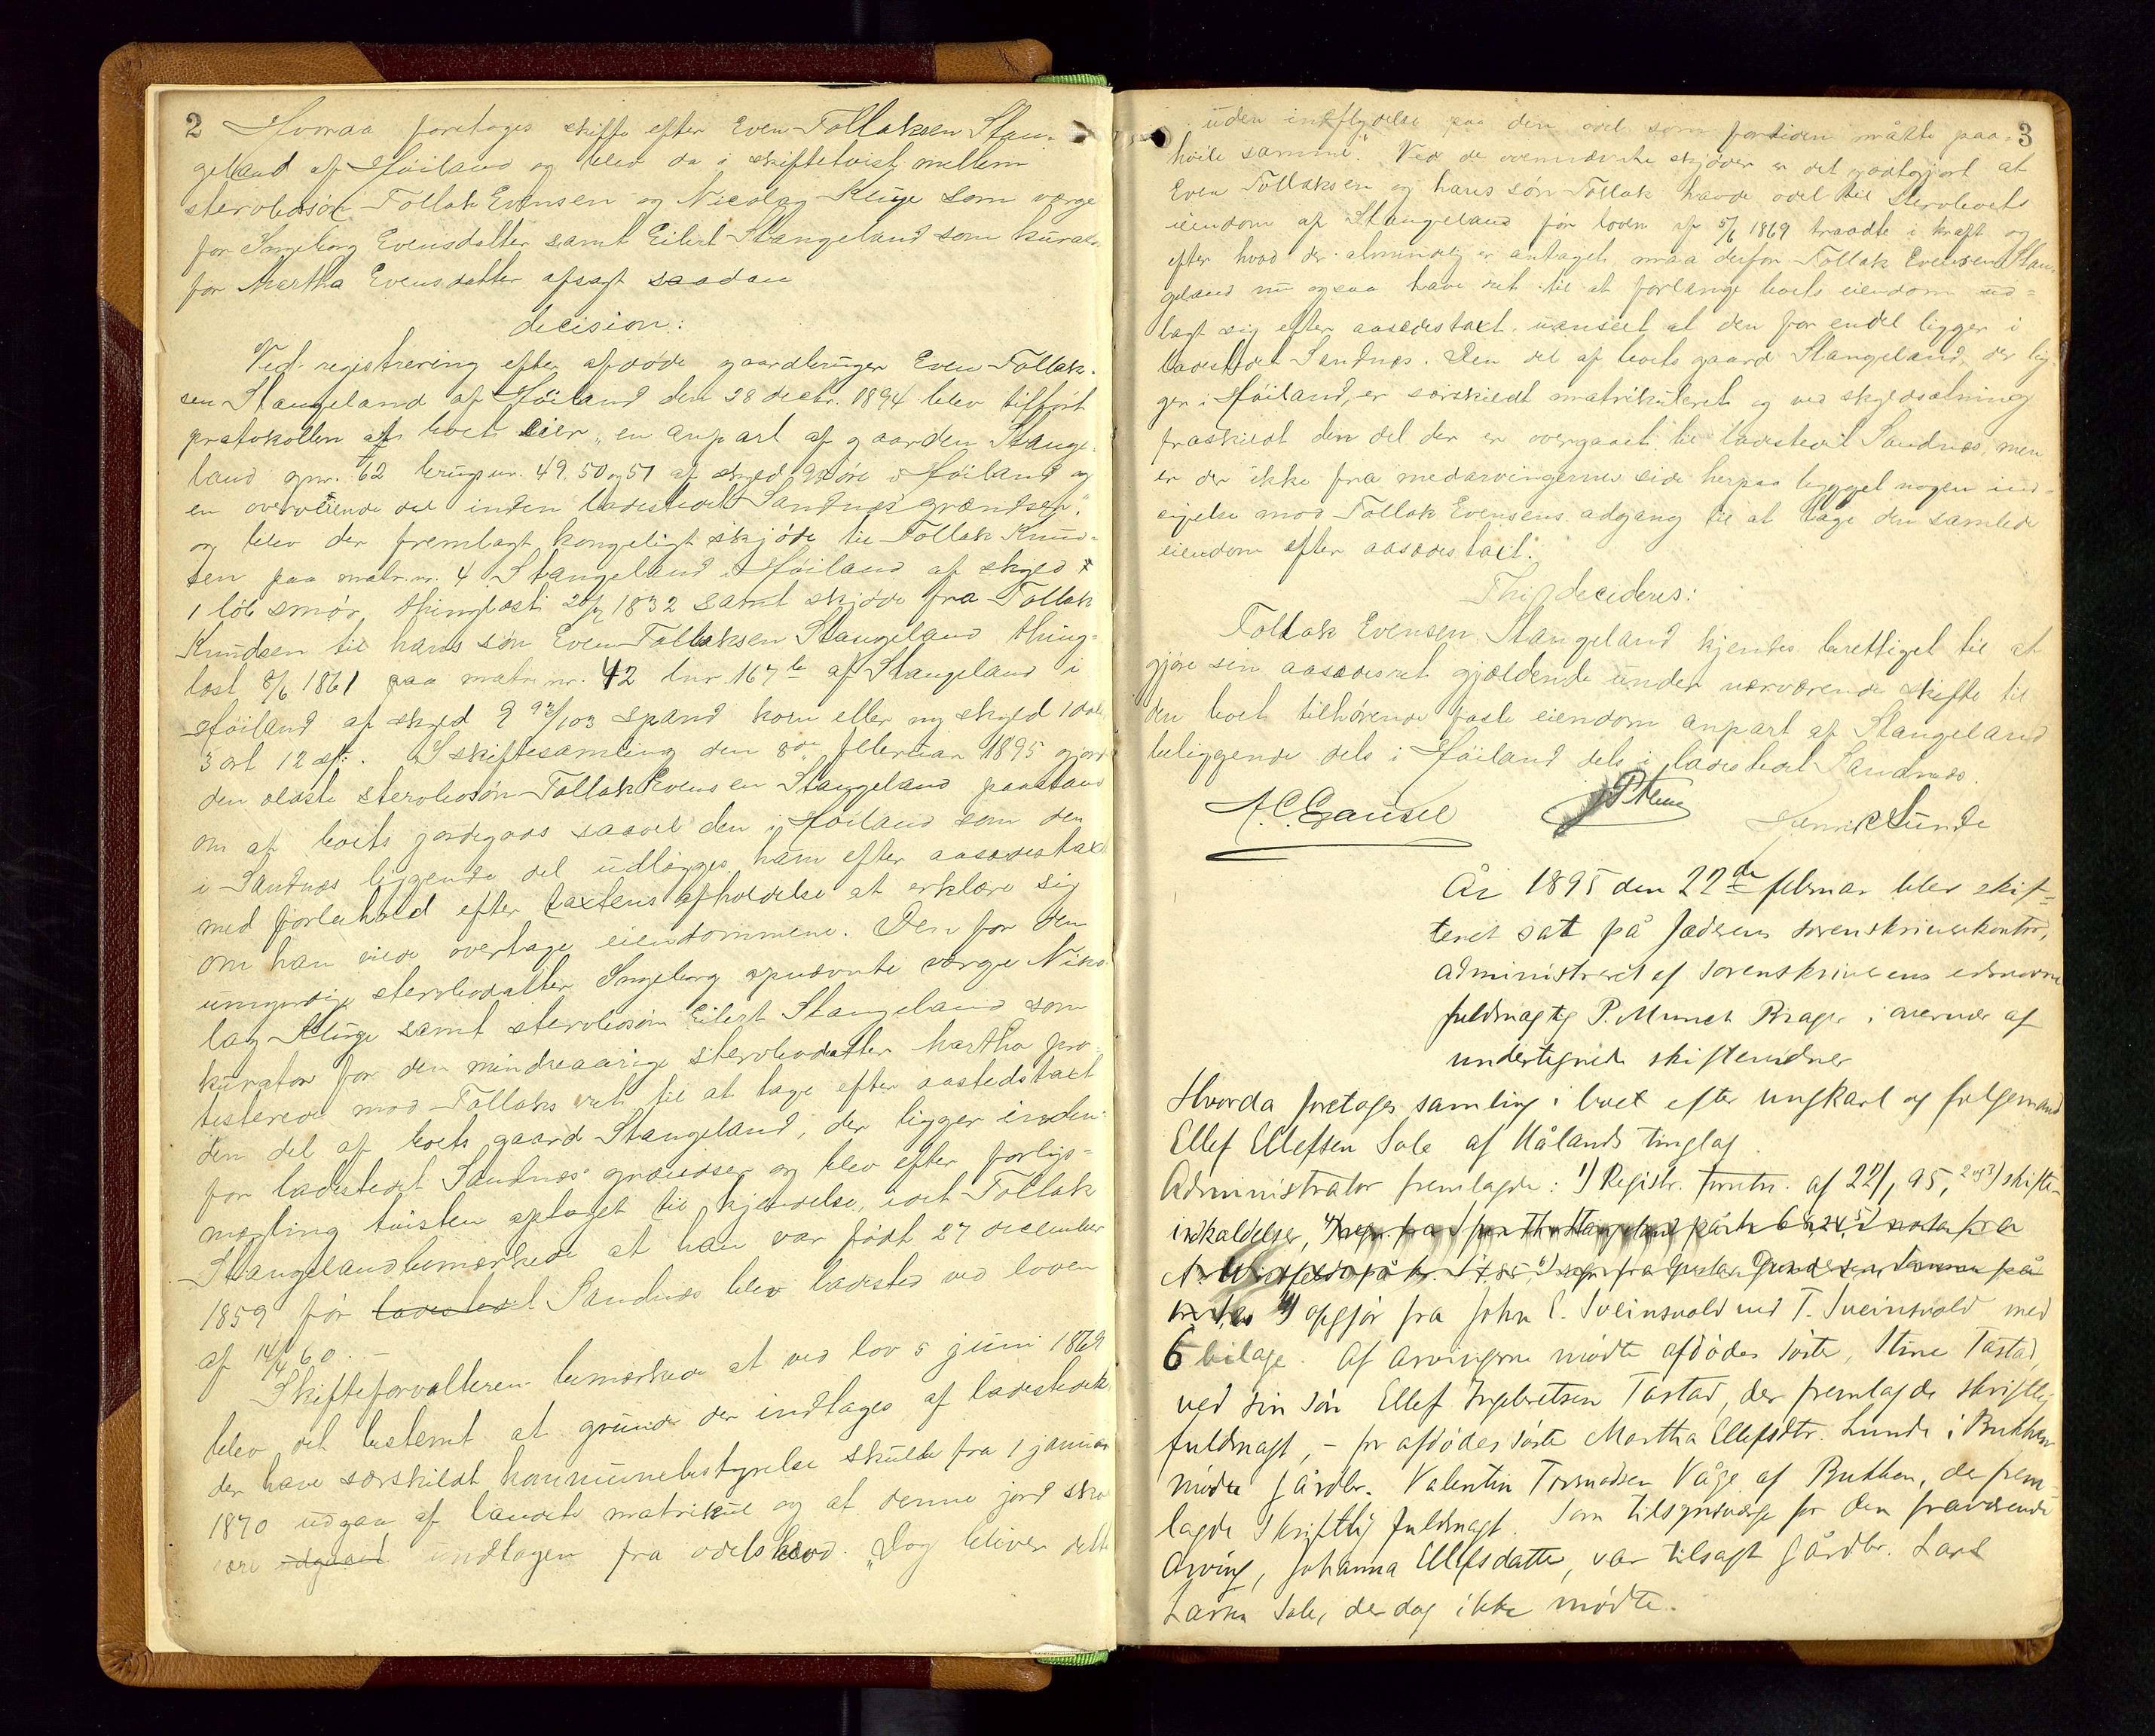 2
Hvoraa foretoges skifte efter Even Tollaksen Stan-
geland af Høiland og blev da i skiftetvist mellem
stervbosøn Tollak Evensen og Nicolay Kluge som værge
for Ingeborg Evensdatter samt Eilert Stangeland som kurator
for Martha Evensdatter afsagt saadan
decision:
Ved registrering efter afdøde gaardbruger Even Tollak-
sen Stangeland af Høiland den 28 decbr. 1894 blev tilført
protokollen at boet eier „en anpart af gaarden Stange-
land gnr. 62 brugsnr. 49, 50 og 51 af skyld øre i Høiland og
en overveiende del inden ladestedet Sandnæs' grændser."
og blev der fremlagt kongeligt skjøde til Tollak Knud-
sen paa matr. nr. 4 Stangeland i Høiland af skyld
1 løb smør, thinglæst 20/7 1832 samt skjøde fra Tollak
Knudsen til hans søn Even Tollaksen Stangeland thing-
læst 8/6 1861 paa matr. nr. 42 lnr. 167 b af Stangeland i
Høiland af skyld 9 93/103 spand korn eller ny skyld 1 dal.
3 ort 12 sk. I skiftesamling den 8de februar 1895 gjorde
den ældste stervbosøn Tollak Evensen Stangeland paastand
om at boets jordegods saavel den i Høiland som den
i Sandnæs liggende del udlægges ham efter aasædestaxt
med forbehold efter taxtens afholdelse at erklære sig
om han vilde overtage eiendommene. Den for den
umyndige stervbodatter Ingeborg opnævnte værge Niko-
lay Kluge samt stervbosøn Eilert Stangeland som
kurator for den mindreaarige stervbodatter Martha pro-
testerede mod Tollaks ret til at tage efter aastedstaxt
den del af boets gaard Stangeland, der ligger inden-
for ladestedet Sandnæs' grændser og blev efter forligs-
mægling tvisten optaget til kjendelse, idet Tollak
Stangeland bemærkede at han var født 27 december
1859 før ladestedet Sandnæs blev ladested ved loven
af 14/4 60. —
Skifteforvalteren bemærkede at ved lov 5 juni 1869
blev det bestemt at grunde der indtages af ladesteder
der have særskildt kommunebestyrelse skulde fra 1 januar
1870 udgaa af landets matrikul og at denne jord skal
være udgaaet undtagen fra odelslov. „Dog bliver dette
3
uden indflydelse paa den odel som forsiden måtte paa-
hvile samme". Ved de ovennævnte skjøder er det godtgjort at
Even Tollaksen og hans søn Tollak havde odel til stervboets
eiendom af Stangeland før loven af 5/6 1869 traadte i kraft og
efter hvad der almindelig er antaget maa derfor Tollak Evensen Stan-
geland nu ogsaa have ret til at forlange boets eiendom ud-
lagt sig efter aasædestaxt uanseet at den for endel ligger i
ladestedet Sandnæs. Den del af boets gaard Stangeland der lig-
ger i Høiland, er særskildt matrikuleret og ved skyldsætning
fraskildt den del der er overgaaet til ladestedet Sandnæs, men
er der ikke fra medarvingernes side herpaa bygget nogen ind-
sigelse mod Tollak Evensens adgang til at tage den samlede
eiendom efter aasædestaxt.
Thi decideres:
Tollak Evensen Stangeland kjendes berettiget til at
gjøre sin aasædesret gjældende under nærværende skifte til
den boet tilhørende faste eiendom anpart af Stangeland
beliggende dels i Høiland dels i ladestedet Sandnæs.
A. C. Gausel Henrik Lunde
År 1895 den 22de februar blev skif-
teret sat på Jæderens sorenskriverkontor,
administreret af sorenskriverens edsvorne
fuldmægtig P. Munch Brager i overvær af
undertegnede skiftevidner
Hvorda foretoges samling i boet efter ungkarl og følgemand
Ellef Ellefsen Sole af Hålands tinglag.
Administrator fremlagde: 1) Registr. forretn. af 22/1 95, 2 og 3) skifte-
indkaldelser, 4) regn. fra Stangeland
på
4) opgjør fra John E. Sveinsvold ved T. Sveinsvold med
6 bilage. Af arvingerne mødte afdødes søster, Stine Tastad,
ved sin søn Ellef Ingebretsen Tastad, der fremlagde skriftlig
fuldmagt, – for afdødes søster Martha Ellefsdtr. Lunde i Bukken
mødte gårdbr. Valentin Tormodsen Våge af Bukken, der frem-
lagde skriftlig fuldmagt. Som tilsynsværge for den fraværende
arving, Johanna Ellefsdatter, var tilsagt gårdbr. Lars
Larsen Sole, der dog ikke mødte.